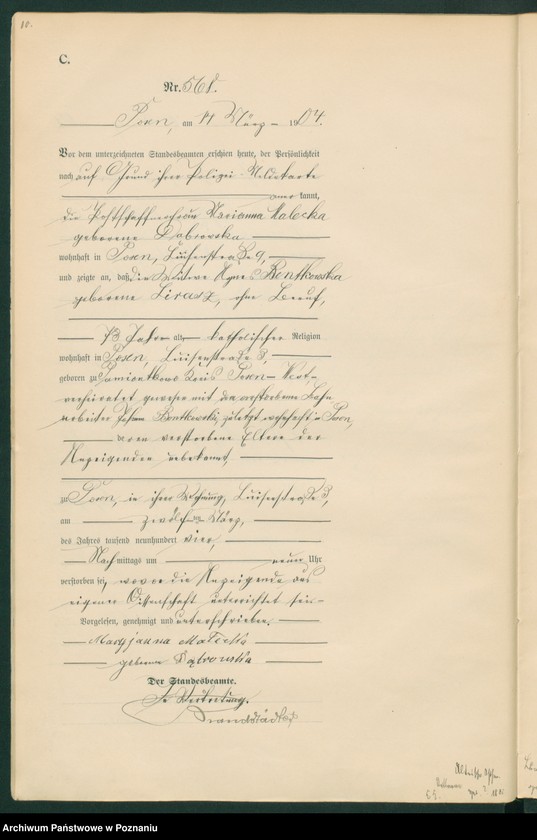 10.
C.
Nr. 568.
Posen, am 14 März 1904.
Vor dem unterzeichneten Standesbeamten erschien heute, der Persönlichkeit
nach auf Grund ihrer Polizei-Meldekarte
kannt,
die Postschaffnersfrau Marianna Malecka
geborene Dabrowska
wohnhaft in Posen, Luisenstraße 9,
und zeigte an, daß die Witwe Agnes Bentkowska
geborene Lirasz, ohne Beruf,
73 Jahre alt, katholischer Religion
wohnhaft in Posen, Luisenstraße
geboren zu Pamiontkowo Kreis Posen-West,
verheiratet gewesen mit dem verstorbenen Bahn
arbeiter Johann Bentkowski, zuletzt wohnhaft in Posen,
deren verstorbene Eltern der
Anzeigenden unbekannt,
zu Posen, in ihrer Wohnung, Luisenstraße
am zwölften März,
des Jahres tausend neunhundert vier,
Nachmittags um neun Uhr
verstorben sei, wovon die Anzeigende aus
eigener Wissenschaft unterrichtet sei.
Vorgelesen, genehmigt und unterschrieben.
Maryjanna Malecka
geborene Dąbrowska
Der Standesbeamte.
In Vertretung.
Brandstädter
Archiwum Państwowe w Poznaniu